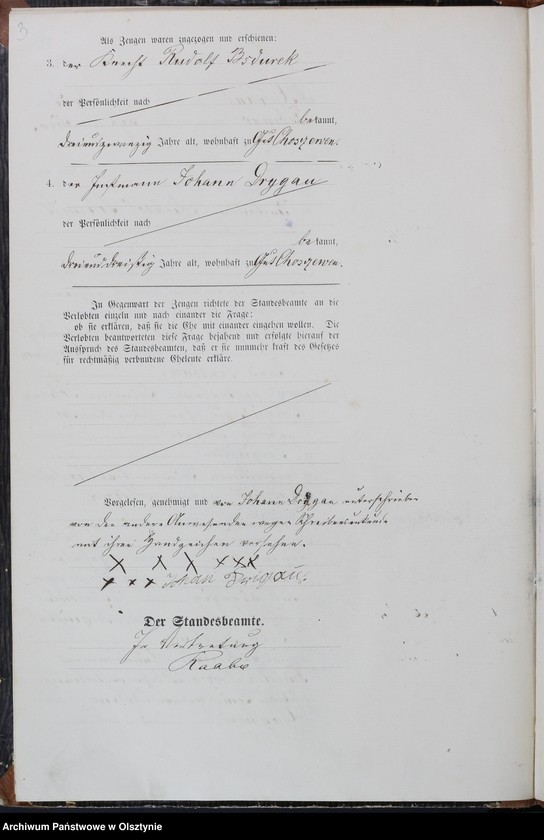 3
Als Zeugen waren zugezogen und erschienen:
3. der Knecht Rudolf Bsdurek
der Persönlichkeit nach
bekannt,
dreiundzwanzig Jahre alt, wohnhaft zu Gut Choszewen.
4. der Instmann Johann Drygau
der Persönlichkeit nach
bekannt,
dreiunddreißig Jahre alt, wohnhaft zu Gut Choszewen.
In Gegenwart der Zeugen richtete der Standesbeamte an die
Verlobten einzeln und nach einander die Frage:
ob sie erklären, daß sie die Ehe mit einander eingehen wollen. Die
Verlobten beantworteten diese Frage bejahend und erfolgte hierauf der
Ausspruch des Standesbeamten, daß er sie nunmehr kraft des Gesetzes
für rechtmäßig verbundene Eheleute erkläre.
Vorgelesen, genehmigt und von Johann Drygau unterschrieben
von den andern Anwesenden wegen Schreibensunkunde
mit ihren Handzeichen versehen.
X X X X XXX
X X X Johan Drigau.
Der Standesbeamte.
In Vertretung
Raabe
Archiwum Państwowe w Olsztynie